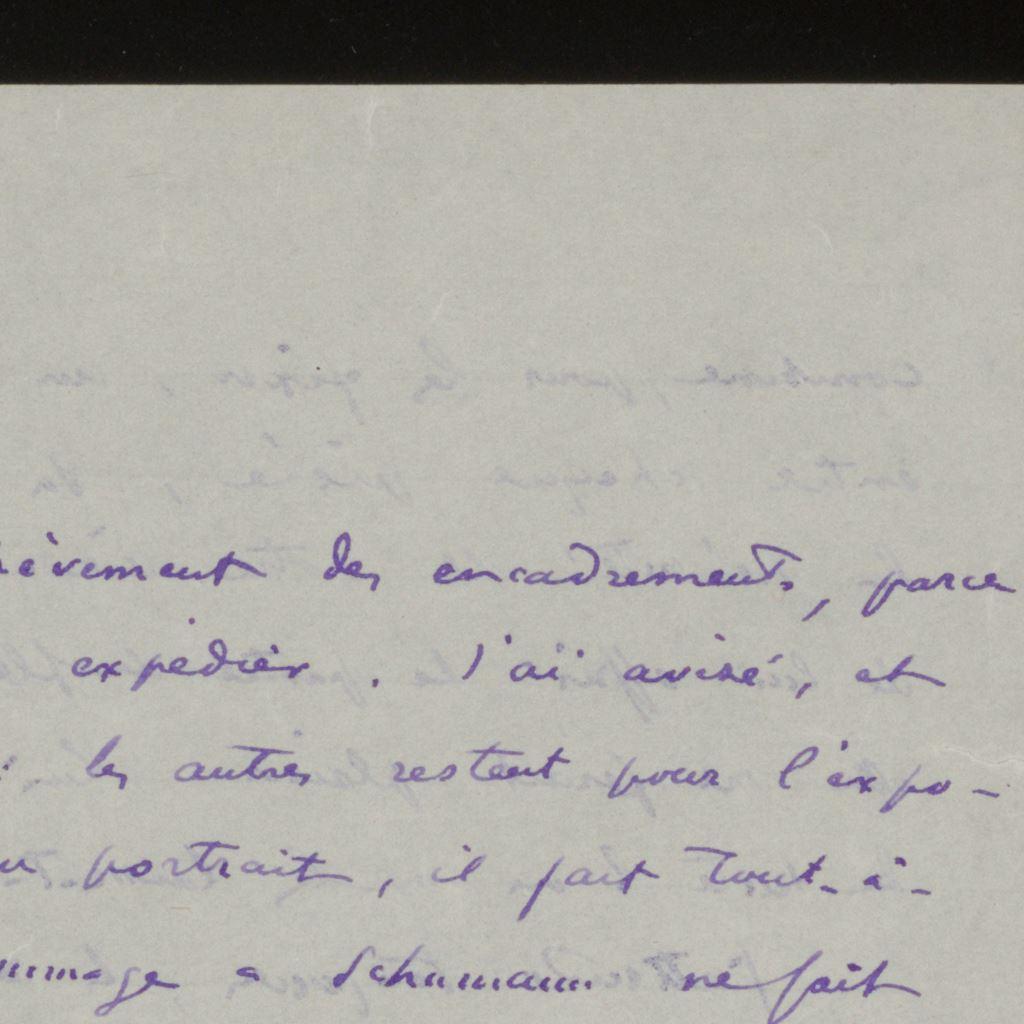 èvement des encadrements, parce
expédier. J'ai avisé, et
les autres restent pour l'expo-
portrait, il fait tout-à-
mmage a Schumann ne fait